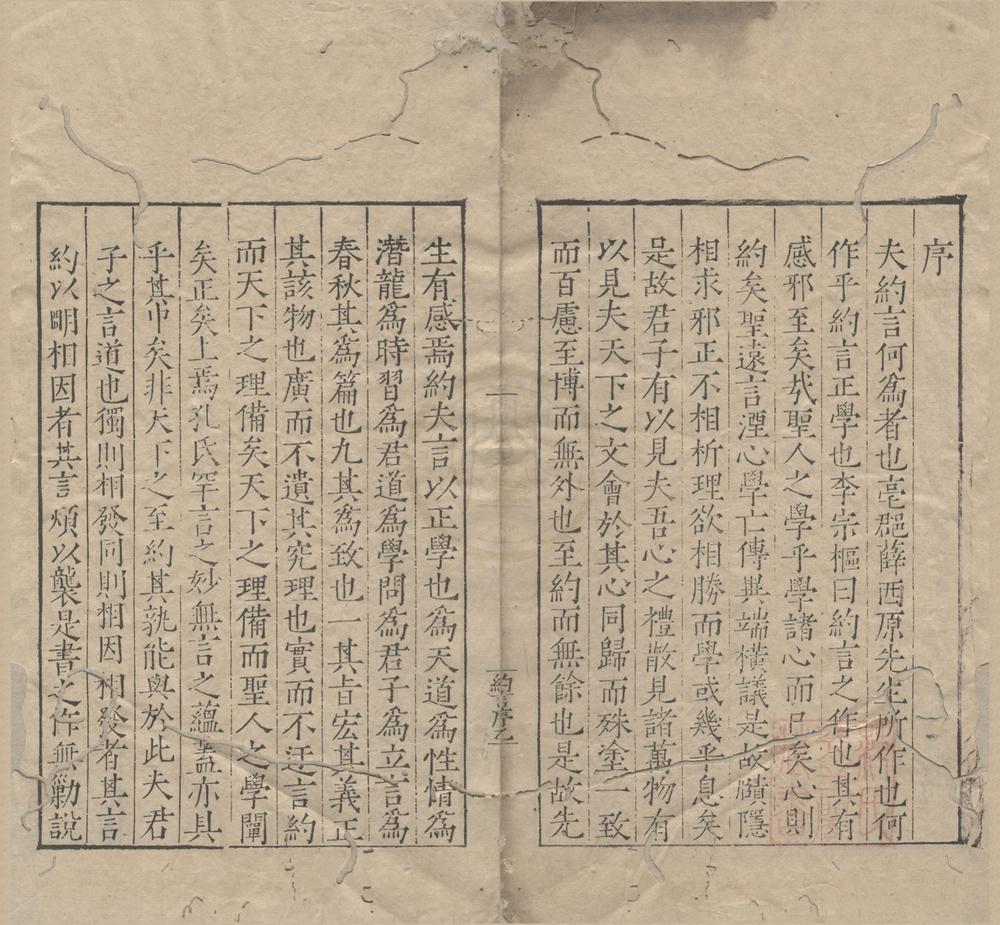 序
夫約言何爲者也亳郡薛西原先生所作也何
作乎約言正學也李宗樞曰約言之作也其有
感邪至矣哉聖人之學乎學諸心而已矣心則
約矣聖遠言湮心學亡傳異端橫議是故賾隱
相求邪正不相析理欲相勝而學或幾乎息矣
是故君子有以見夫吾心之禮散見諸萬物有
以見夫天下之文會於其心同歸而殊塗一致
而百慮至博而無外也至約而無餘也是故先
約言序乙
生有感焉約夫言以正學也爲天道爲性情爲
潛龍爲時習爲君道爲學問爲君子爲立言爲
春秋其爲篇也九其爲致也一其旨宏其義正
其該物也廣而不遺其究理也實而不迂言約
而天下之理備矣天下之理備而聖人之學闡
矣正矣上焉孔氏罕言之妙無言之蘊蓋亦具
乎其中矣非天下之至約其孰能與於此夫君
子之言道也獨則相發同則相因相發者其言
約以明相因者其言煩以襲是書之作無勦說